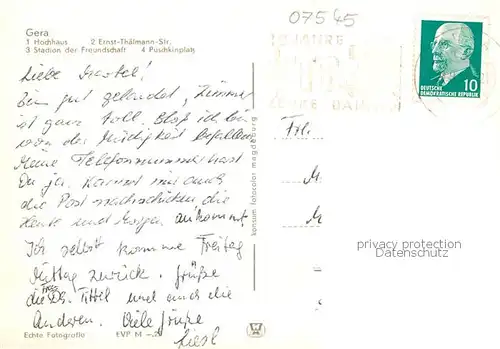 Gera
1 Hochhaus 2 Ernst-Thälmann-Str.
3 Stadion der Freundschaft 4 Puschkinplatz
07545
JAHRE
DEUTSCHE
DEMOKRATISCHE REPUBLIK
10
Liebe
Bin gut gelandet, Zimmer
ist ganz toll. Bloß ich bin
von der Müdigkeit befallen.
Meine Telefonnummer hast
Du ja. Kannst mir auch
die Post nachschicken, die
Heute und Morgen ankommt.
Ich selbst komme Freitag
Mittag zurück. Grüße
die Fr. Dr. Tittel und auch die
Anderen. Viele Grüße
Liesl
Frl.
konsum fotocolor magdeburg
privacy protection
Datenschutz
Echte Fotografie EVP M